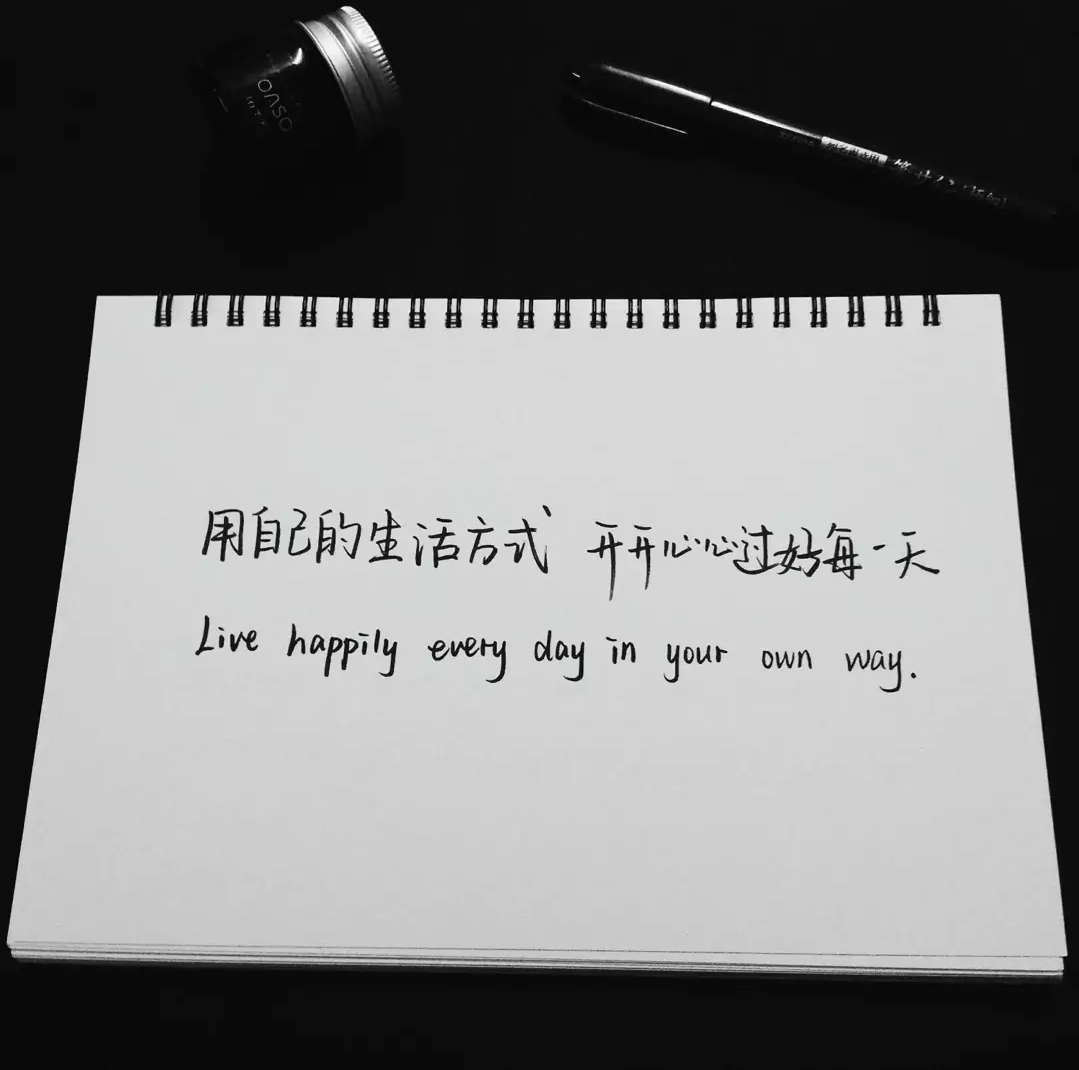 OASO
用自己的生活方式 开开心心过好每一天
Live happily every day in your own way.